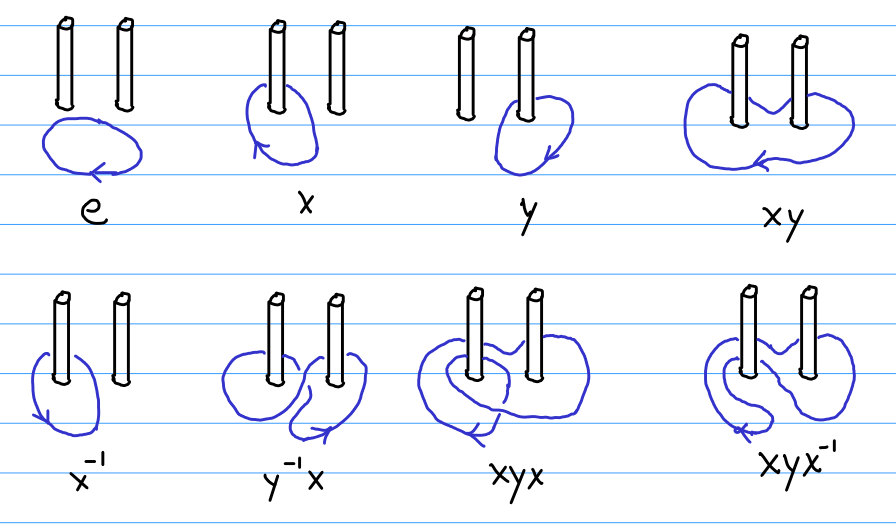 e x y xy
x⁻¹ y⁻¹x xyx xyx⁻¹